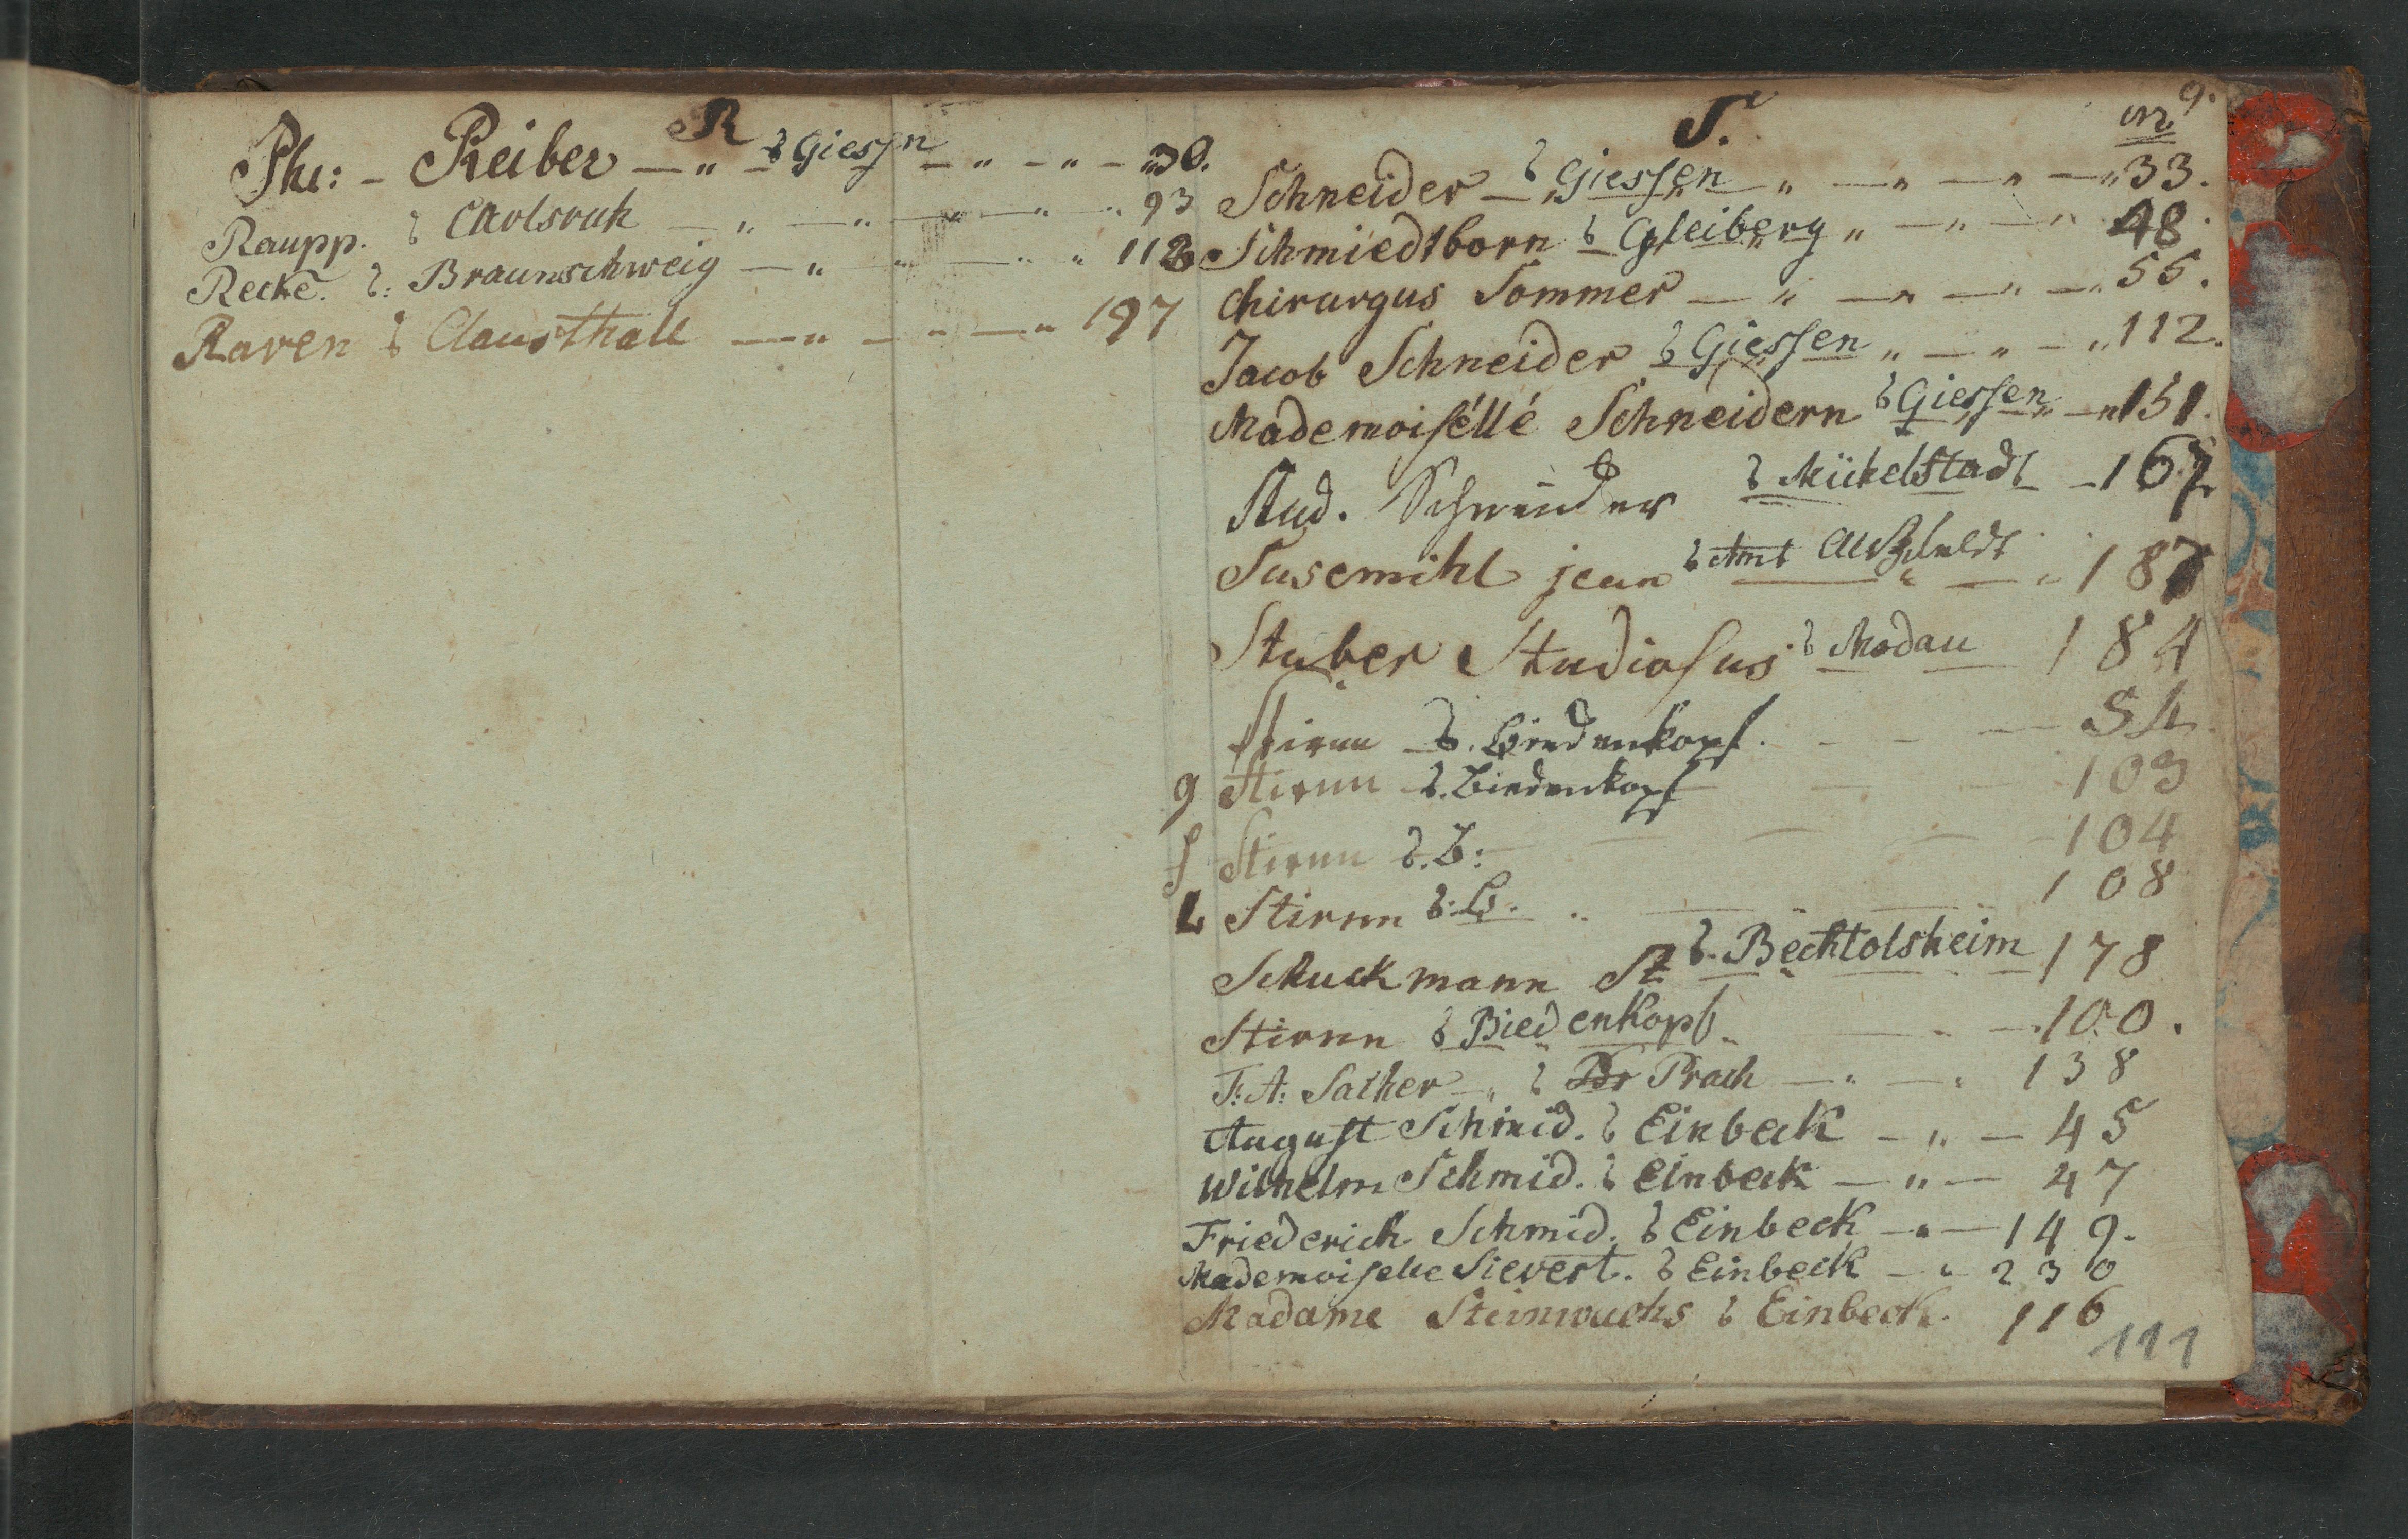 R
Phi: - Reiber — " — δ Giessn — " — " — 30.
Raupp. δ Carlsruh — " — " — " — " 93
Recke. δ: Braunschweig — " — " — " 112
Raven δ Clausthall — " — " — " 197
S. 9.
Schneider — " δ Giessen " — " — " — " 33.
Schmiedtborn δ Gleiberg " — " — " 48.
Chirurgus Sommer — " — " — " — " 55.
Jacob Schneider δ Giessen " — " — " 112.
Mademoiséllé Schneidern δ Giessen " — " 151.
Stud. Schneider δ Mickelstadt — 167
Susemihl jean δ Amt — " 187
Stuber Studiosus δ Modau 184
Stirnn δ. Biedenkopf. - - — 54.
g Stirnn δ. Biedenkopf — — 103
f Stirnn δ. B: — — — 104
L Stirnn δ: B. .. — — 108
Schuckmann St δ. Bechtolsheim 178
Stirnn δ Biedenkopf - - — 100.
F: A: Sacher — " δ Br Prach — " — " 138
August Schmid. δ Einbeck — " — 45
Wilhelm Schmid. δ Einbeck — " — 47
Friederich Schmid. δ Einbeck — " — 149.
Mademoiselle Sievert. δ Einbeck — " 230
Madame Steinwachs δ Einbeck. 116
111